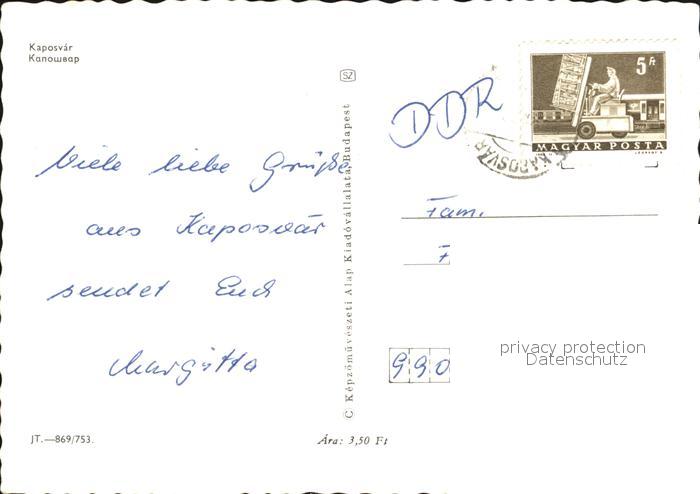 Kaposvár
Капошвар
SZ
DDR
5 Ft
MAGYAR POSTA
KAPOSVÁR
Viele liebe Grüße
aus Kaposvár
sendet Euch
Margitta
Fam.
7
990
privacy protection
Datenschutz
© Képzőművészeti Alap Kiadóvállalata, Budapest
JT.—869/753.
Ára: 3,50 Ft